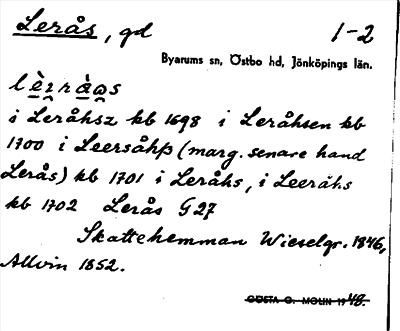 Lerås, gd 1-2
Byarums sn, Östbo hd, Jönköpings län.
i Leråhsz kb 1698 i Leråhsen kb
1700 i Leersåhs (marg. senare hand
Lerås) kb 1701 i Leråhs, i Leeråhs
kb 1702 Lerås G27
Skattehemman Wieselgr. 1846,
Allvin 1852.
GÖSTA G. MOLIN 1948.